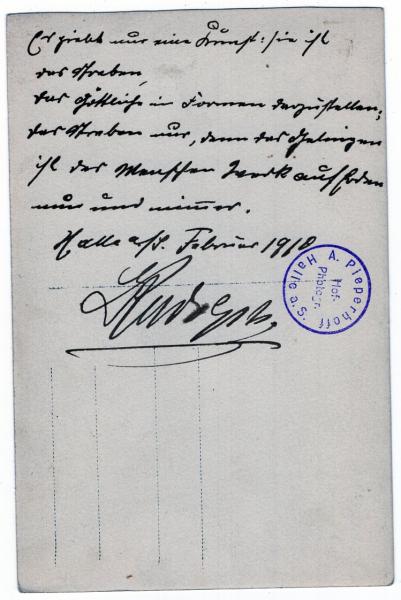 Es giebt nur eine Kunst: sie ist
das Streben,
das Göttliche in Formen darzustellen;
das Streben nur, denn das Gelingen
ist des Menschen Werk auf Erden
nun und nimmer.
Halle a/S. Februar 1918
A. Pieperhoff
Halle a. S.
Hof-
Photogr.